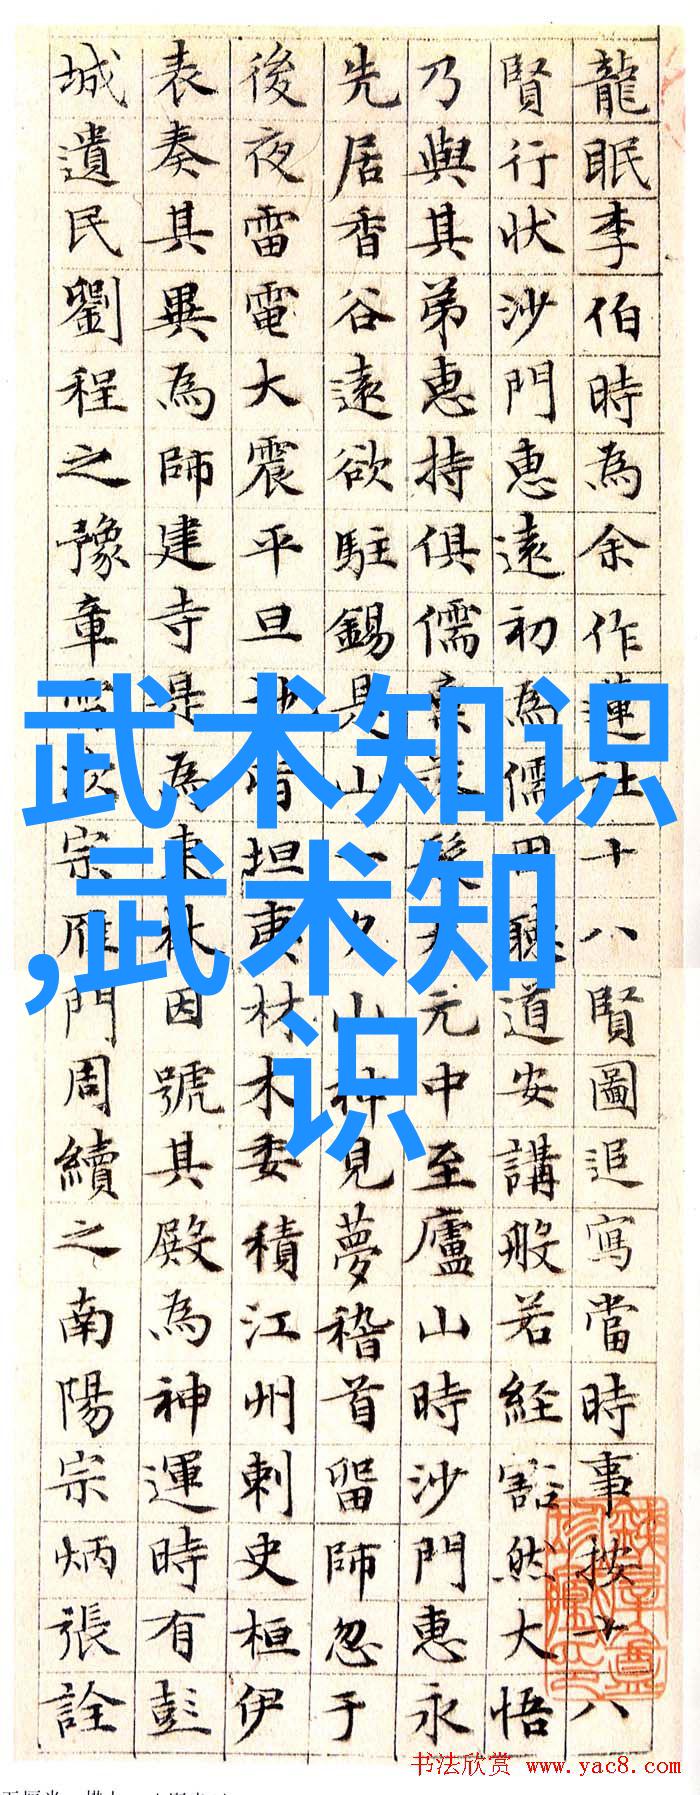 龍眠李伯時為余作蓮社十八賢圖追寫當時事按十八
賢行狀沙門惠遠初為儒因聽道安講般若經豁然大悟
乃與其弟惠持俱儒元中至廬山時沙門惠永
先居香谷遠欲駐錫是山一山神見夢稽首留師忽于
後夜雷電大震平旦地坦夷材木委積江州刺史桓伊
表奏其異為師建寺是為東林因號其殿為神運時有彭
城遺民劉程之豫章雷次宗雁門周續之南陽宗炳張詮
武术知识
,武术知
识
书法欣赏 www.yac8.com